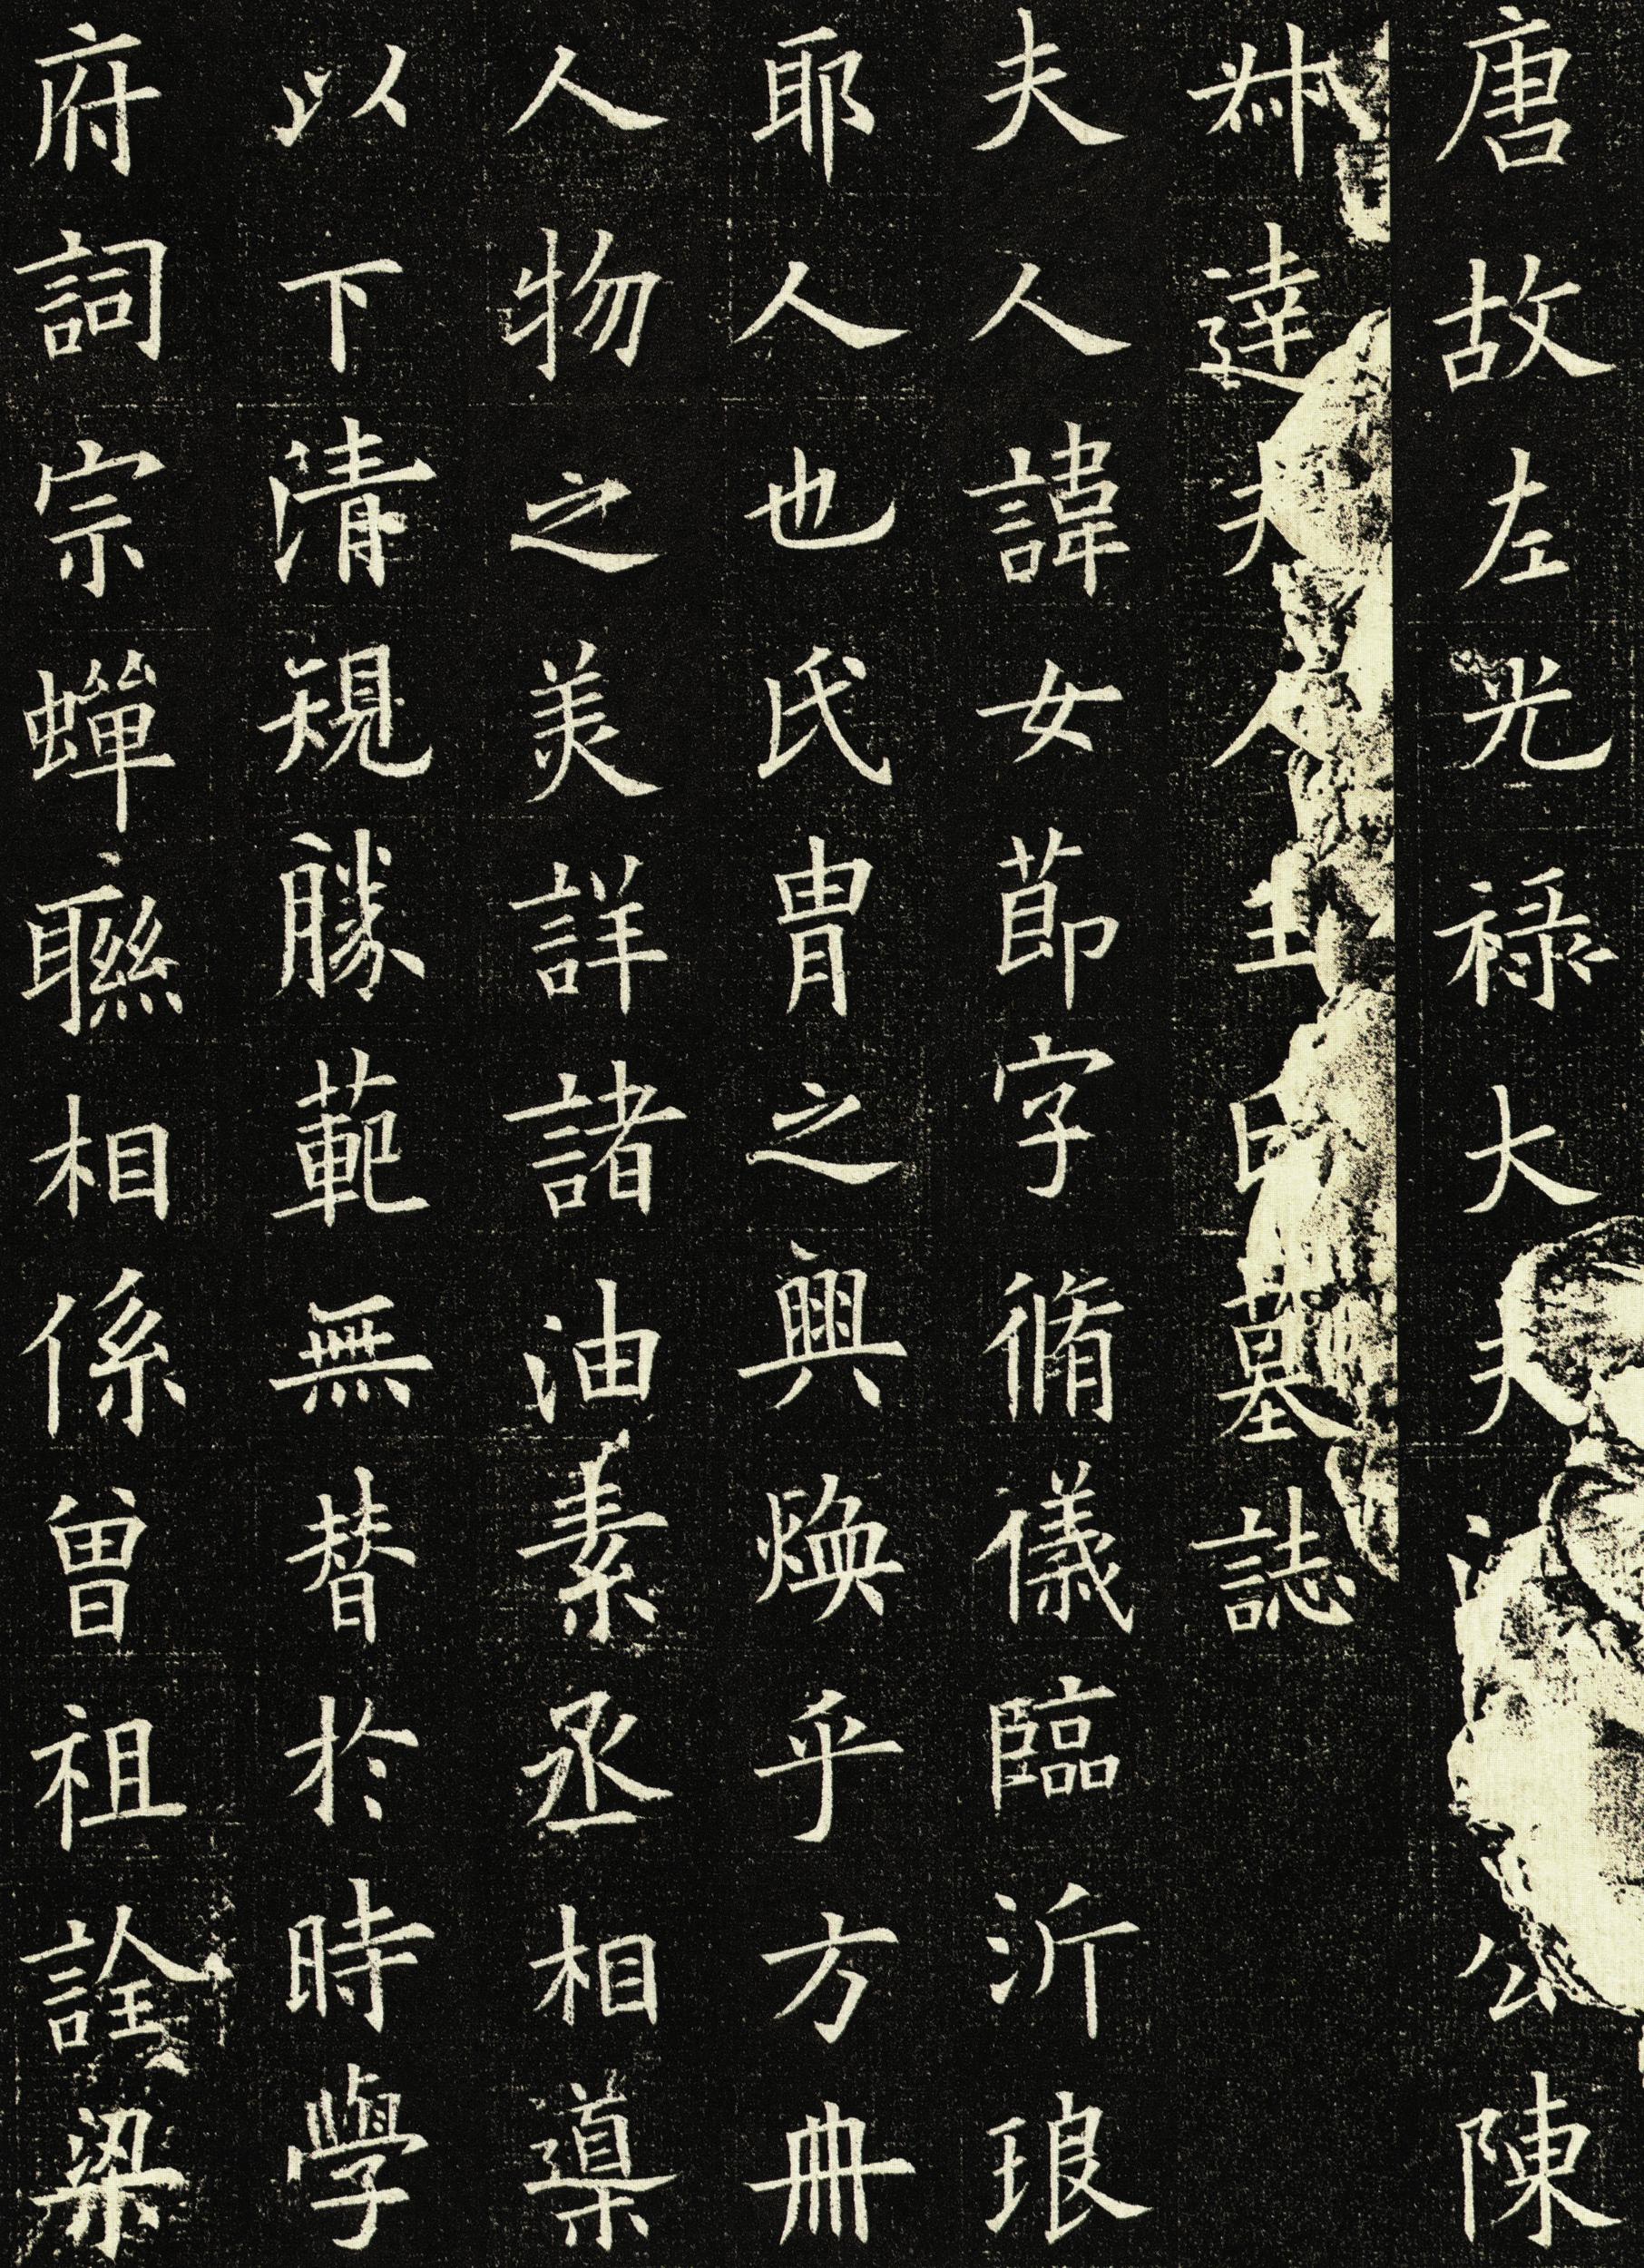 唐故左光禄大夫公陳
叔達夫人王墓誌
夫人諱女節字脩儀臨沂琅
耶人也氏胄之興煥乎方冊
人物之美詳諸油素丞相導
以下清規勝範無替於時學
府詞宗蟬聯相係曾祖詮梁